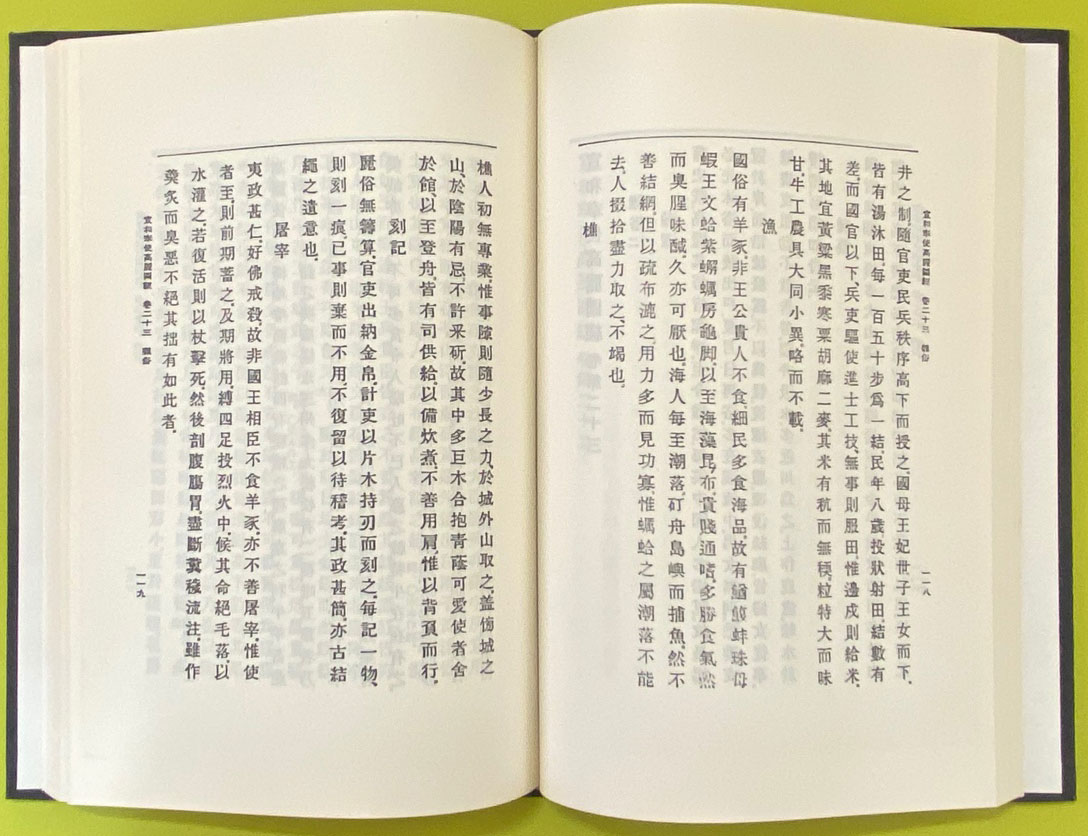 宣和奉使高麗圖經 卷二十三 雜俗
一一八
井之制隨官吏民兵秩序高下而授之國母王妃世子王女而下
皆有湯沐田每一百五十步爲一結民年八歲投狀射田結數有
差而國官以下兵吏驅使進士工技無事則服田惟邊戍則給米
其地宜黃粱黑黍寒粟胡麻二麥其米有秔而無稬粒特大而味
甘牛工農具大同小異略而不載
漁
國俗有羊豕非王公貴人不食細民多食海品故有鰌鰒蚌珠母
蝦王文蛤紫蟹蠣房龜脚以至海藻昆布貴賤通嗜多勝食氣然
而臭腥味醎久亦可厭也海人每至潮落矴舟島嶼而捕魚然不
善結網但以疏布漉之用力多而見功寡惟蠣蛤之屬潮落不能
去人掇拾盡力取之不竭也
樵
樵人初無專業惟事隙則隨少長之力於城外山取之蓋傍城之
山於陰陽有忌不許采斫故其中多巨木合抱靑蔭可愛使者舍
於館以至登舟皆有司供給以備炊煮不善用肩惟以背負而行
刻記
麗俗無籌算官吏出納金帛計吏以片木持刃而刻之每記一物
則刻一痕已事則棄而不用不復留以待稽考其政甚簡亦古結
繩之遺意也
屠宰
夷政甚仁好佛戒殺故非國王相臣不食羊豕亦不善屠宰惟使
者至則前期蓄之及期將用縛四足投烈火中候其命絕毛落以
水灌之若復活則以杖擊死然後剖腹腸胃盡斷糞穢流注雖作
羹炙而臭惡不絕其拙有如此者
宣和奉使高麗圖經 卷二十三 雜俗
一一九